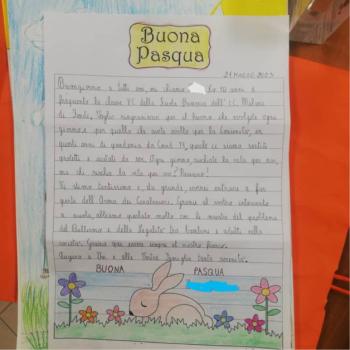 Buona
Pasqua
21 MARZO 2023
Buongiorno a tutti voi, mi chiamo Ho 10 anni e
frequento la classe VC della Scuola Primaria dell' I.C. Milani
di Fondi. Voglio ringraziarvi per il lavoro che svolgete ogni
giorno e per quello che avete svolto per la Comunità, in
questi anni di pandemia da Covid 19, quale ci siamo sentiti
protetti e aiutati da voi. Ogni giorno, rischiate la vita per noi,
ma chi rischia la vita per voi? Nessuno!
Vi stimo tantissimo e, da grande, vorrei entrare a far
parte dell' Arma dei Carabinieri. Grazie al vostro intervento
a scuola, abbiamo parlato molto con le maestre del problema
del Bullismo e della Legalità tra bambini e adulti nella
società. Grazie per essere sempre al nostro fianco.
Auguro a Voi e alle Vostre famiglie tanta serenità.
BUONA PASQUA